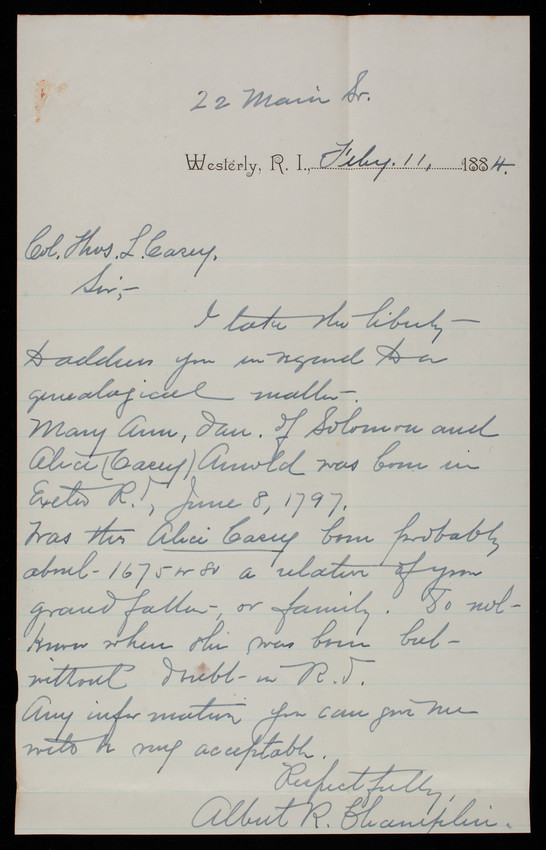 22 Main St.
Westerly, R. I., Feby. 11, 1884.
Col. Thos. L. Casey.
Sir;-
I take the liberty
to address you in regard to a
genealogical matter.
Mary Ann, dau. of Solomon and
Alice (Casey) Arnold was born in
Exeter R.I., June 8, 1797.
Was this Alice Casey born probably
about 1675 or 80 a relative of your
grand father, or family. Do not
know when she was born but
without doubt in R.I.
Any information you can give me
will be very acceptable.
Respectfully,
Albert R. Champlin.